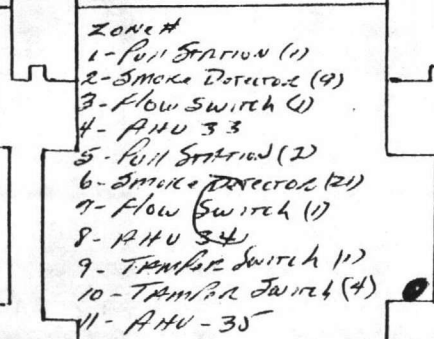 ZONE #
1 - Pull Station (1)
2 - Smoke Detector (9)
3 - Flow Switch (1)
4 - AHU 33
5 - Pull Station (2)
6 - Smoke Detector (21)
7 - Flow Switch (1)
8 - AHU 34
9 - Tamper Switch (1)
10 - Tamper Switch (4)
11 - AHU - 35